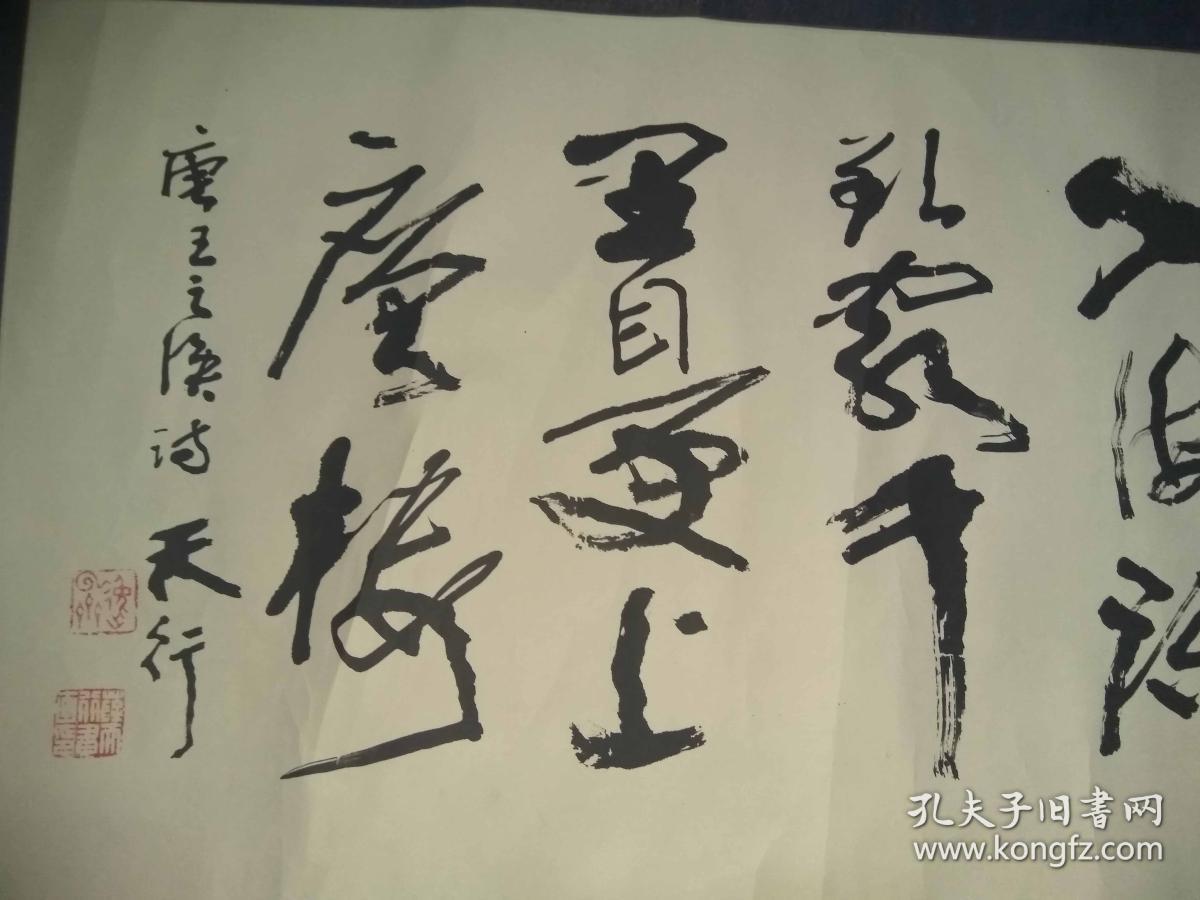 入海流
欲窮千
里目更上
一層樓
唐王之渙詩 天行
孔夫子旧书网
www.kongfz.com